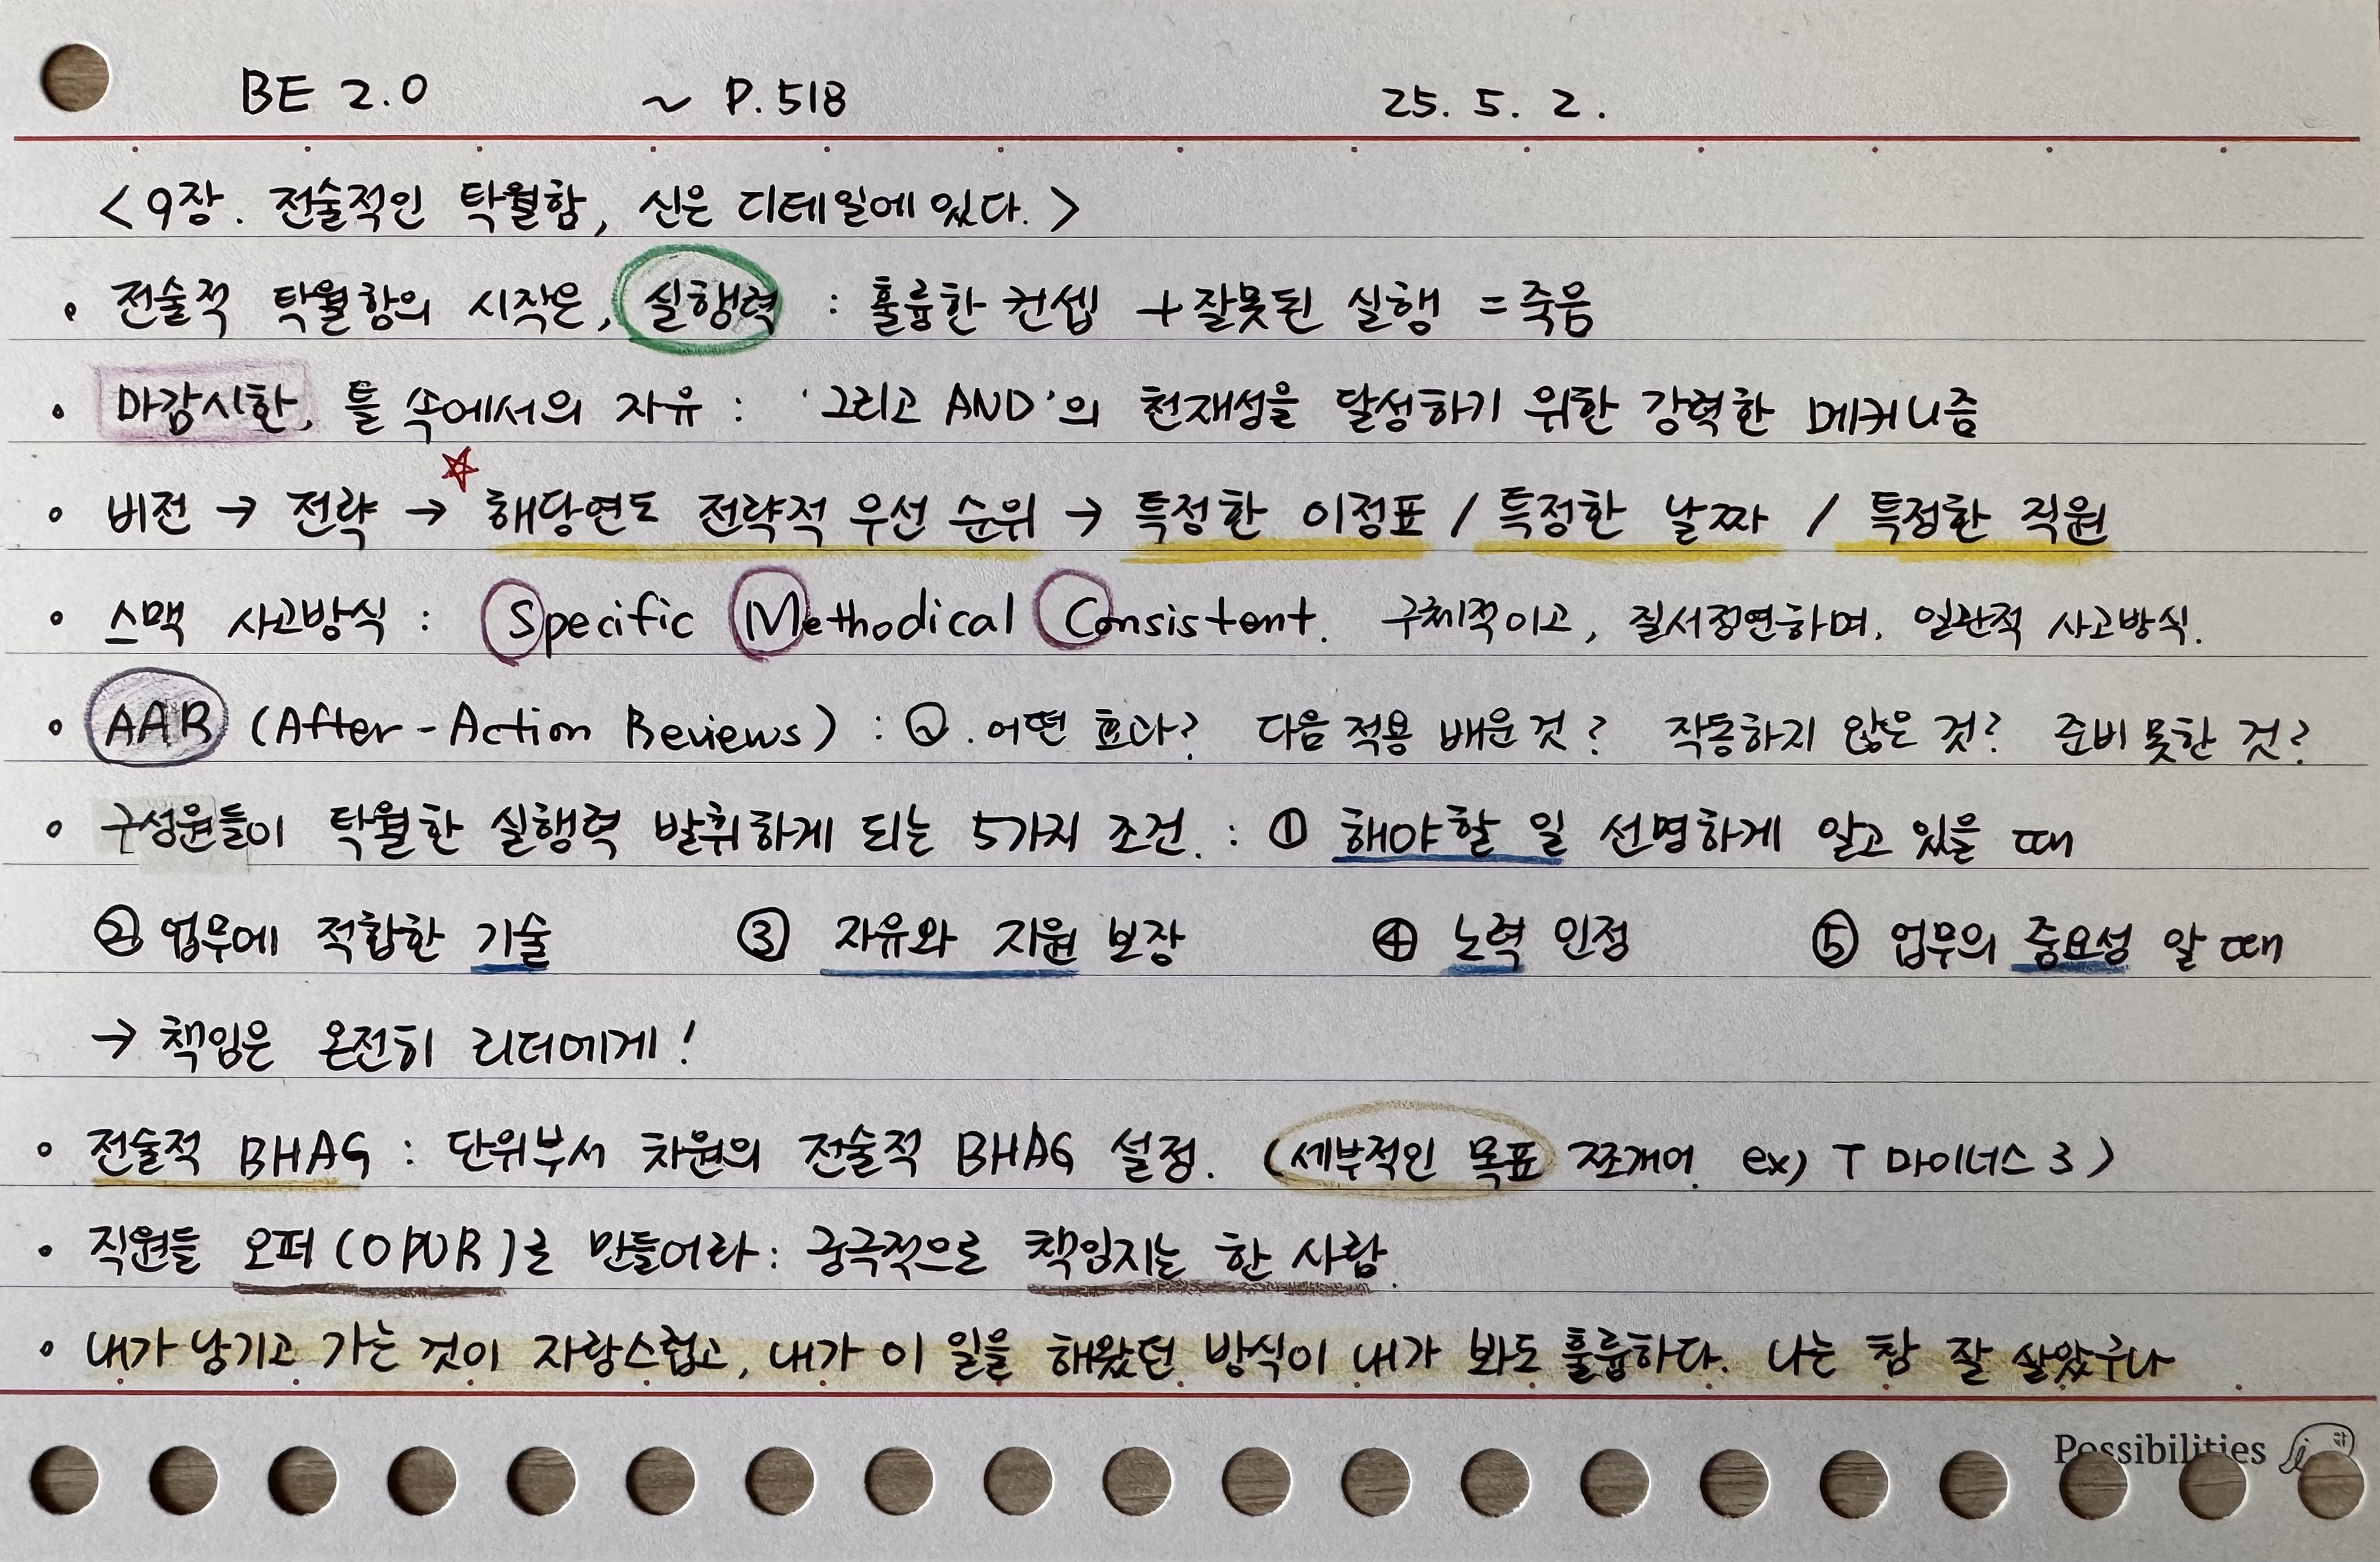 BE 2.0 ~ P.518 25. 5. 2.
<9장. 전술적인 탁월함, 신은 디테일에 있다.>
• 전술적 탁월함의 시작은, 실행력 : 훌륭한 컨셉 + 잘못된 실행 = 죽음
• 마감시한, 틀 속에서의 자유 : '그리고 AND'의 천재성을 달성하기 위한 강력한 메커니즘
• 비전 → 전략 → ☆ 해당연도 전략적 우선 순위 → 특정한 이정표 / 특정한 날짜 / 특정한 직원
• 스맥 사고방식 : Specific Methodical Consistent. 구체적이고, 질서정연하며, 일관적 사고방식.
• AAR (After-Action Reviews) : Q. 어떤 효과? 다음 적용 배운 것? 작동하지 않은 것? 준비 못한 것?
• 구성원들이 탁월한 실행력 발휘하게 되는 5가지 조건. : ① 해야할 일 선명하게 알고 있을 때
② 업무에 적합한 기술 ③ 자유와 지원 보장 ④ 노력 인정 ⑤ 업무의 중요성 알 때
→ 책임은 온전히 리더에게!
• 전술적 BHAG : 단위부서 차원의 전술적 BHAG 설정. (세부적인 목표 쪼개어. ex) T 마이너스 3)
• 직원들 오퍼(OPUR)로 만들어라 : 궁극적으로 책임지는 한 사람.
• 내가 남기고 가는 것이 자랑스럽고, 내가 이 일을 해왔던 방식이 내가 봐도 훌륭하다. 나는 참 잘 살았구나
Possibilities